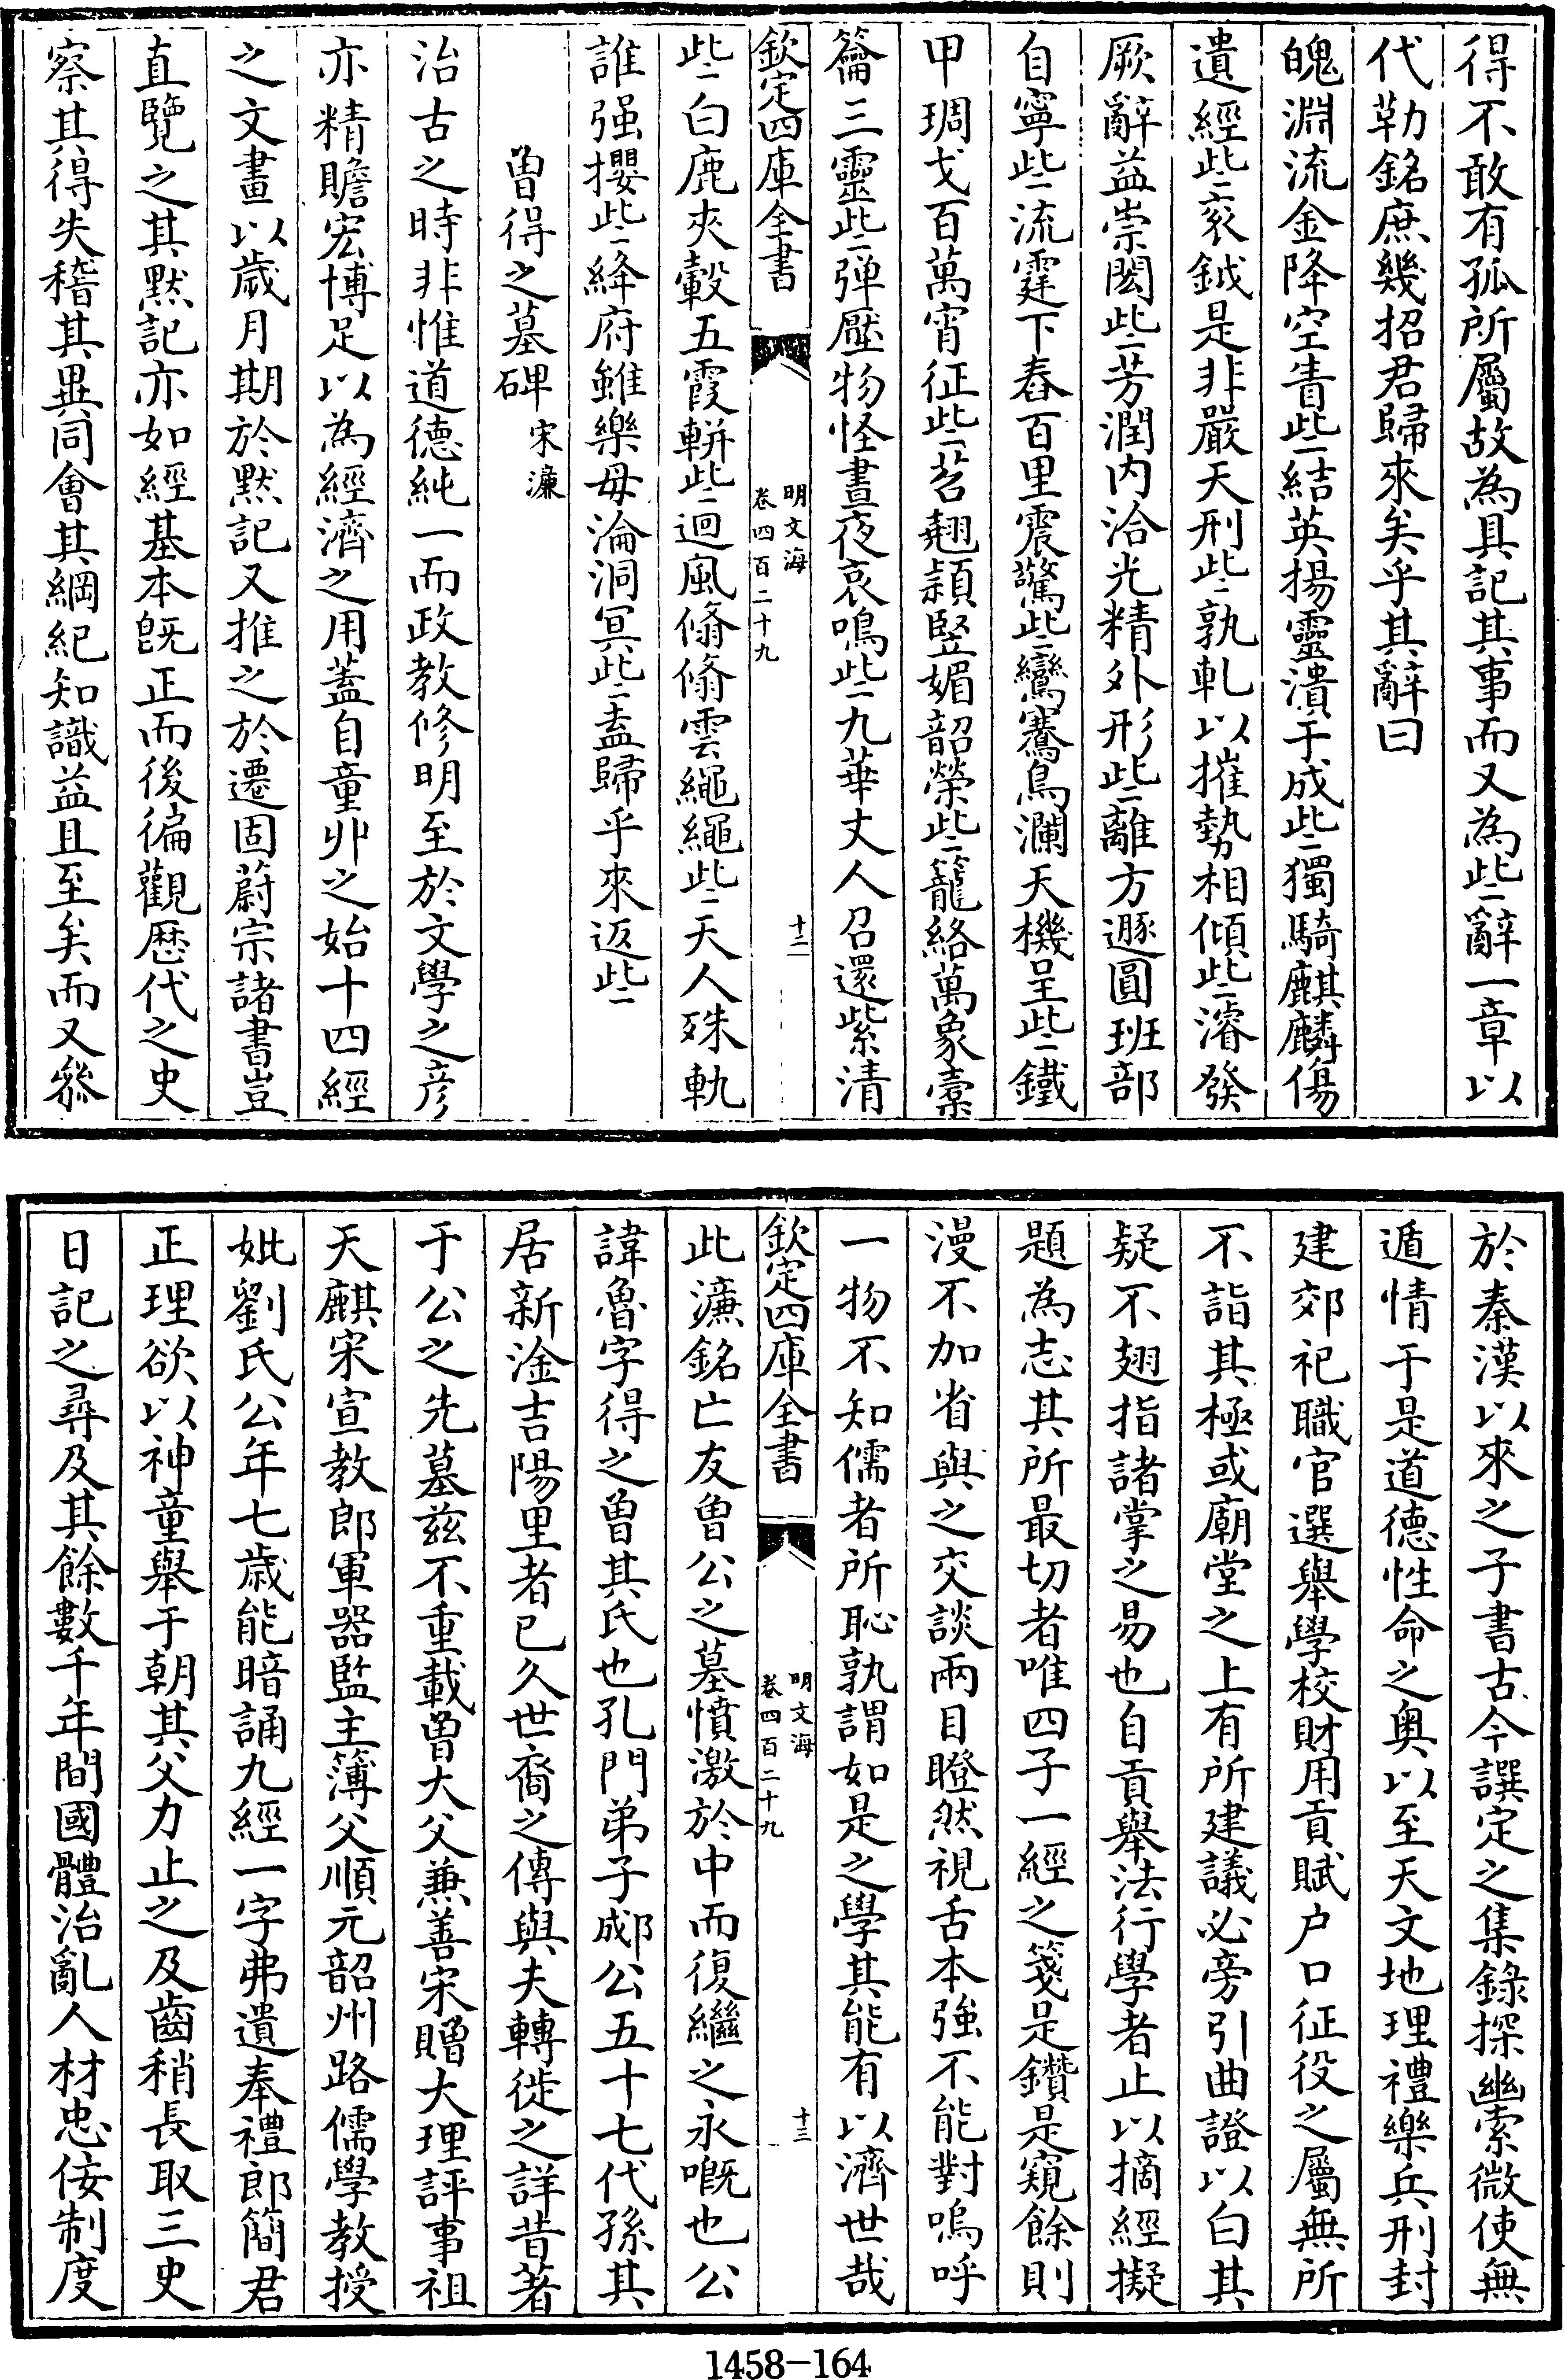 得不敢有孤所屬故為具記其事而又為些辭一章以
代勒銘庶幾招君歸來矣乎其辭曰
魄淵流金降空青些結英揚靈潰于成些獨騎麒麟傷
遺經些衮鉞是非嚴天刑些孰軋以摧勢相傾些濬發
厥辭益崇閎些芳潤内洽光精外形些離方遯圓班部
自寧些流霆下舂百里震驚些鸞騫鳥瀾天機呈些鐵
甲琱戈百萬宵征些苕翹穎竪媚韶榮些籠絡萬象橐
籥三靈些弾壓物怪晝夜哀鳴些九華丈人召還紫清
欽定四庫全書
明文海
卷四百二十九
十二
些白鹿夾轂五霞軿些迴風翛翛雲繩繩些天人殊軌
誰强攖些絳府雖樂毋淪洞冥些盍歸乎來返些
曾得之墓碑 宋濂
治古之時非惟道德純一而政教修明至於文學之彦
亦精贍宏博足以為經濟之用蓋自童丱之始十四經
之文畫以歲月期於默記又推之於遷固蔚宗諸書豈
直覽之其默記亦如經基本既正而後徧觀歴代之史
察其得失稽其異同會其綱紀知識益且至矣而又叅
於秦漢以來之子書古今譔定之集錄探幽索微使無
遁情于是道德性命之奥以至天文地理禮樂兵刑封
建郊祀職官選舉學校財用貢賦户口征役之屬無所
不詣其極或廟堂之上有所建議必旁引曲證以白其
疑不翅指諸掌之易也自貢舉法行學者止以摘經擬
題為志其所最切者唯四子一經之箋是鑽是窺餘則
漫不加省與之交談兩目瞪然視舌本强不能對嗚呼
一物不知儒者所恥孰謂如是之學其能有以濟世哉
欽定四庫全書
明文海
卷四百二十九
十三
此濂銘亡友曾公之墓憤激於中而復繼之永嘅也公
諱魯字得之曾其氏也孔門弟子郕公五十七代孫其
居新淦吉陽里者已久世裔之傳與夫轉徙之詳昔著
于公之先墓兹不重載曾大父兼善宋贈大理評事祖
天麒宋宣教郎軍器監主簿父順元韶州路儒學教授
妣劉氏公年七歲能暗誦九經一字弗遺奉禮郎簡君
正理欲以神童舉于朝其父力止之及齒稍長取三史
日記之尋及其餘數千年間國體治亂人材忠佞制度
1458-164